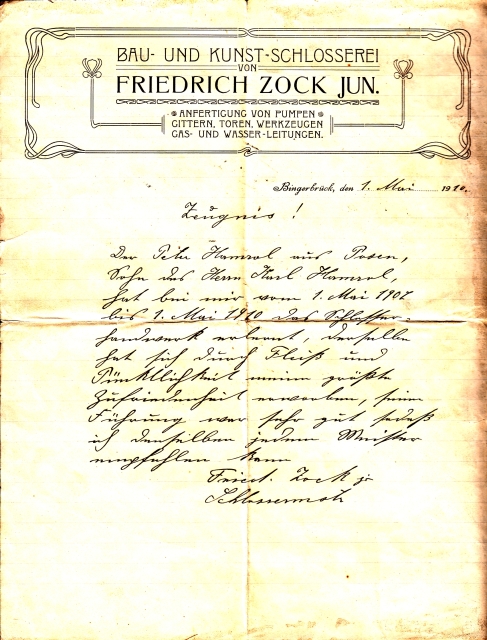 BAU- UND KUNST-SCHLOSSEREI
VON
FRIEDRICH ZOCK JUN.
ANFERTIGUNG VON PUMPEN
GITTERN, TOREN, WERKZEUGEN
GAS- UND WASSER-LEITUNGEN.
Bingerbrück, den 1. Mai 1910.
Zeugnis!
Der Peter Hamrol aus Posen,
Sohn des Herrn Karl Hamrol,
hat bei mir vom 1. Mai 1907
bis 1. Mai 1910 das Schlosser-
handwerk erlernt, derselbe
hat sich durch Fleiß und
Pünktlichkeit meine größte
Zufriedenheit erworben, seine
Führung war sehr gut sodaß
ich denselben jedem Meister
empfehlen kann
Friedr. Zock jr
Schlossermstr